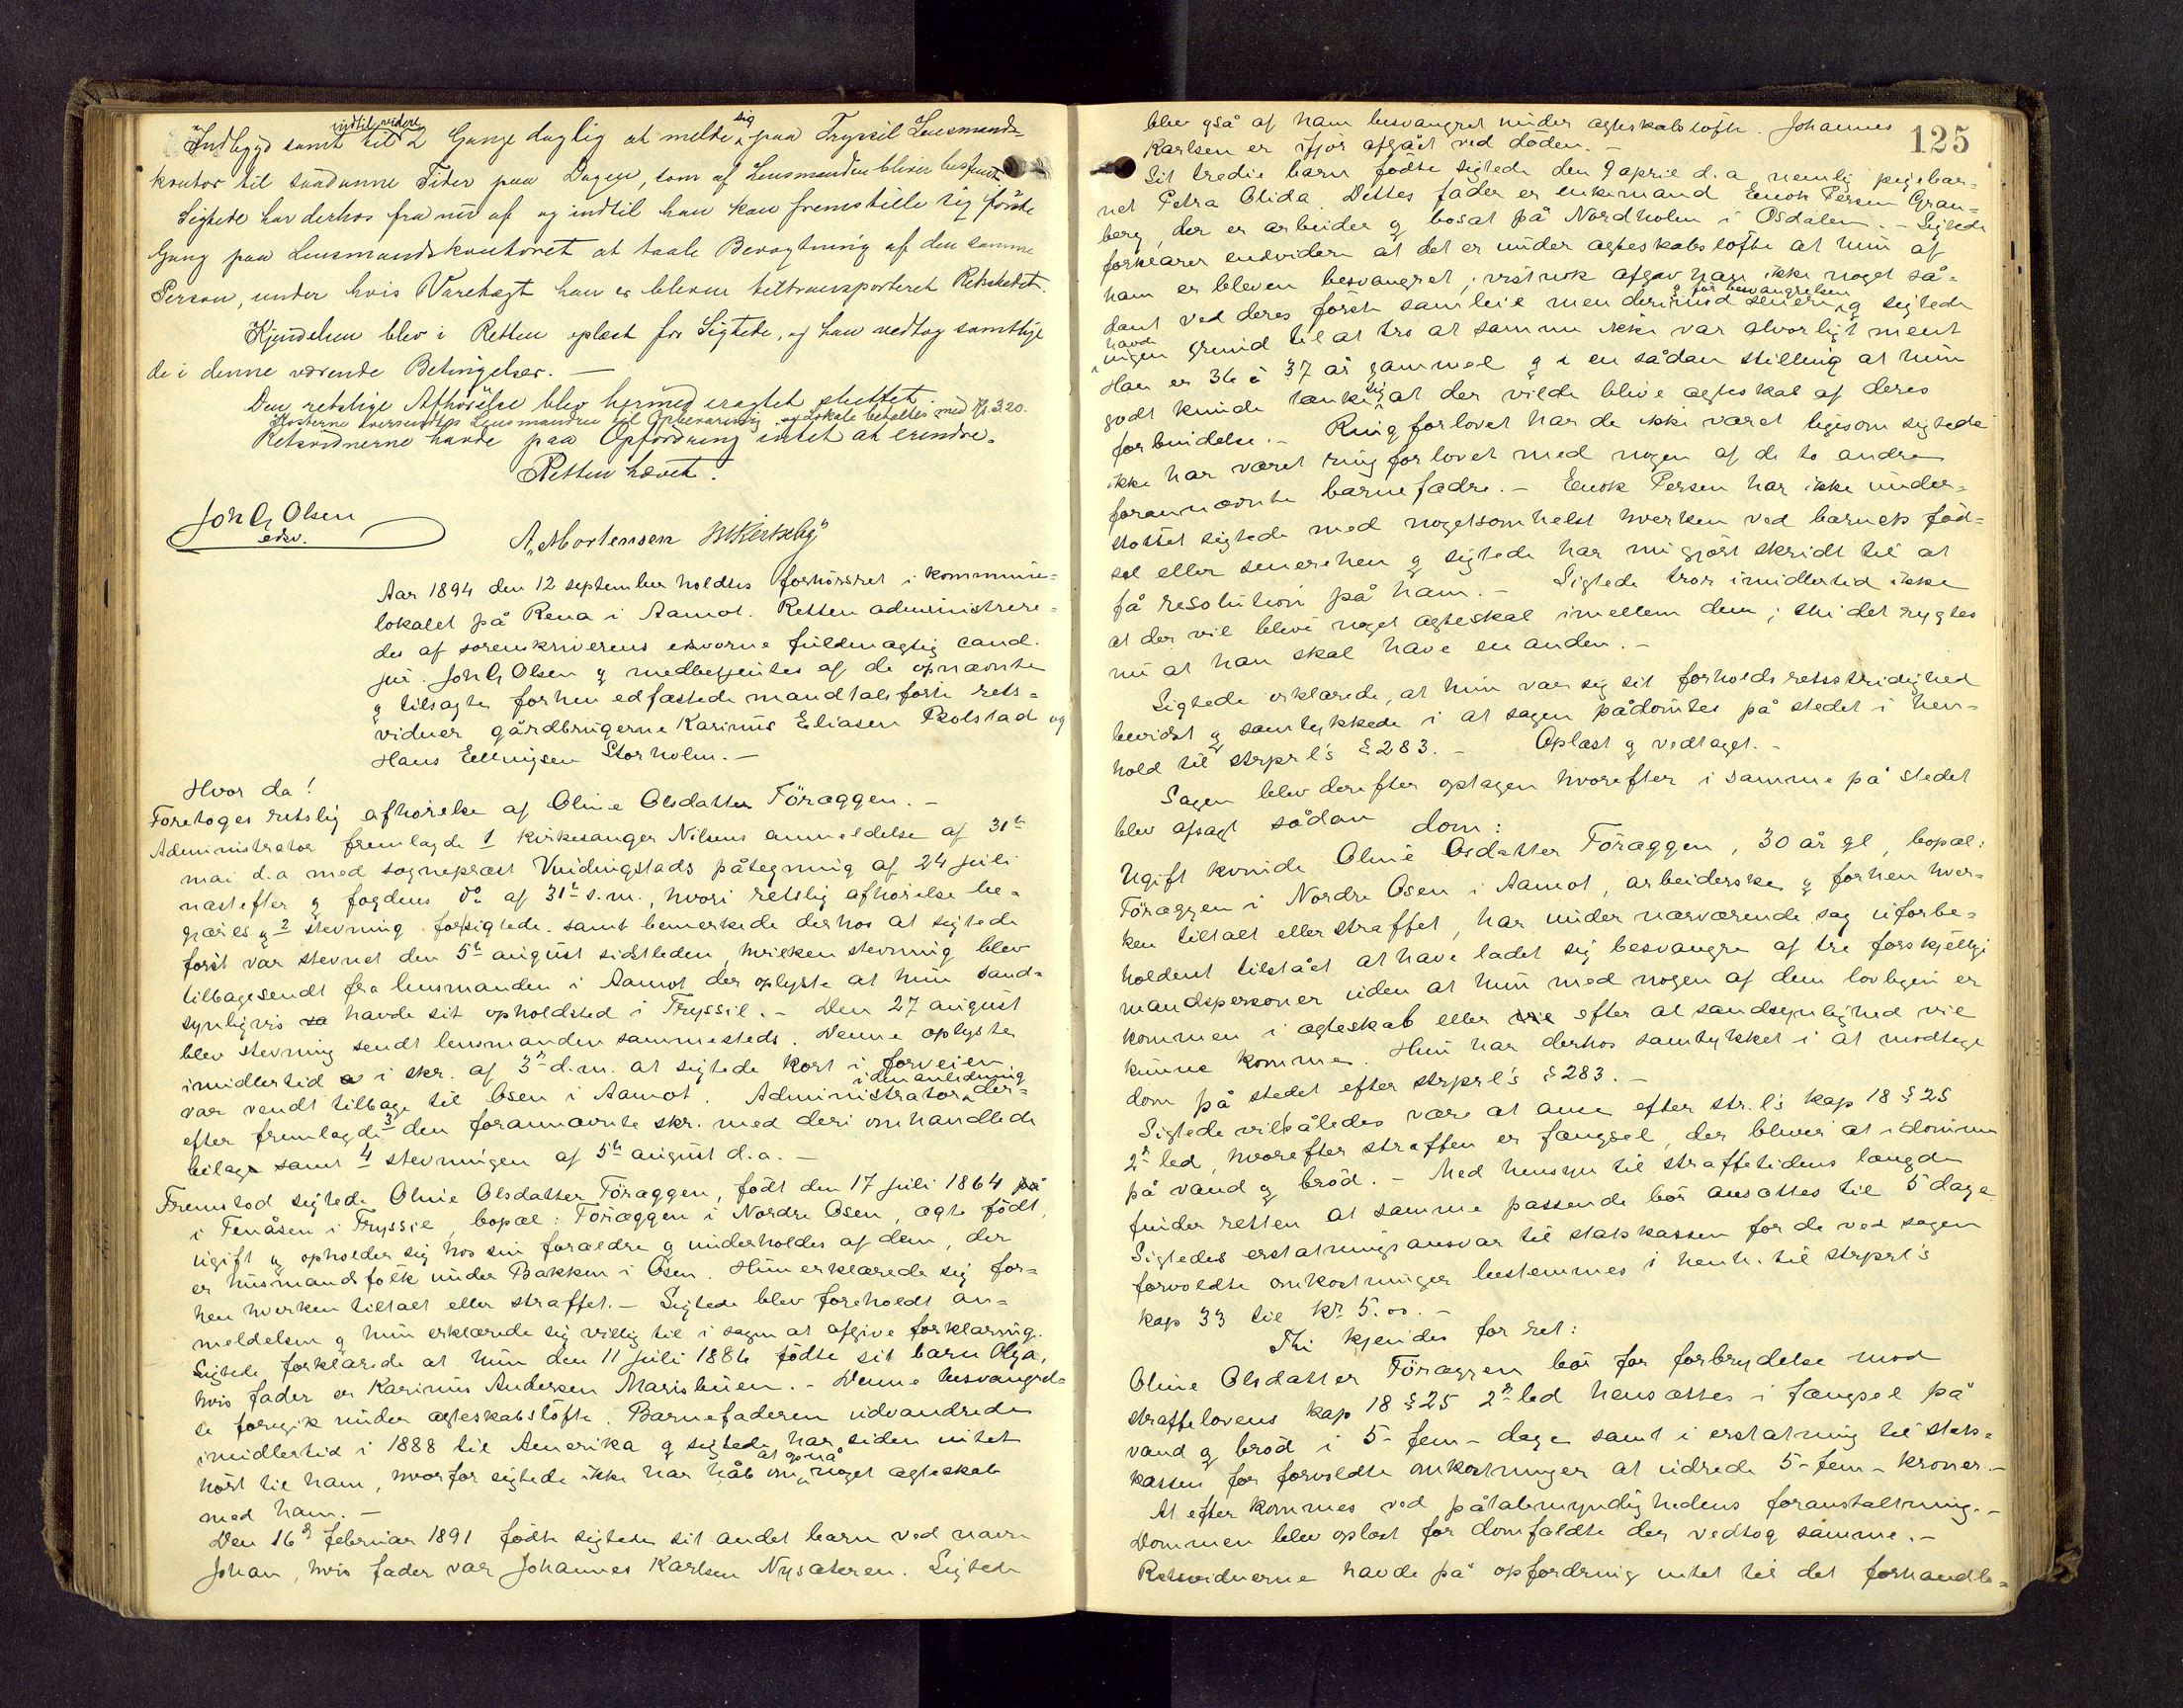 Indbygd samt indtil videre 2 Gange daglig at melde sig paa Trysil Lensmands
kontor til saadanne Tider paa Dagen, som af Lensmanden bliver bestemt.
Sigtede har derhos fra nu af og indtil han kan fremstille sig første
Gang paa Lensmandskontoret at taale Bevogtning af den samme
Person, under hvis Varetægt han er bleven tiltransporteret Retsstedet.
Kjendelsen blev i Retten oplæst for Sigtede, og han vedtog samtlige
de i denne værende Betingelser. —
Den retslige Afhørelse blev hermed eragtet sluttet.
Kosterne oversendtes Lensmanden til Opbevaring og Lokale betaltes med Kr. 3.20.
Retsvidnerne havde paa Opfordring intet at erindre.
Retten hævet.
Joh G Olsen
edsv.
A. Mortensen
Aar 1894 den 12 september holdtes forhørsret i kommune=
lokalet på Rena i Aamot. Retten administrere=
des af sorenskriverens edsvorne fuldmægtig cand.
jur. Joh G Olsen og medbetjentes af de opnævnte
og tilsagte forhen edfæstede mandtalsførte rets=
vidner gårdbrugerne Karinus Eliasen Rolstad og
Hans Ellingsen Storholm. —
Hvor da!
Foretoges retslig afhørelse af Oline Olsdatter Föræggen. —
Administrator fremlagde 1 kirkesanger Nilsens anmeldelse af 31te
mai d.a med sognepræst Vindingstads påtegning af 24 juli
næstefter og fogdens do af 31te s.m., hvori retslig afhørelse be=
gjæres og 2 stevning for sigtede samt bemerkede derhos at sigtede
først var stevnet den 5te august sidstleden, hvilken stevning blev
tilbagesendt fra lensmanden i Aamot der oplyste at hun sand=
synligvis havde sit opholdsted i Tryssil. — Den 27 august
blev stevning sendt lensmanden sammesteds. Denne oplyste
imidlertid i skr. af 3de d.m. at sigtede kort i forveien
var vendt tilbage til Osen i Aamot. Administrator i den anledning der=
efter fremlagde 3 den forannævnte skr. med deri omhandlede
bilage samt 4 stevningen af 5te august d.a. —
Fremstod sigtede Oline Olsdatter Föræggen, født den 17 juli 1864
i Tenåsen i Tryssil, bopæl: Föræggen i Nordre Osen, ægte født,
ugift og opholder sig hos sin forældre og underholdes af dem, der
er husmandsfolk under Bakken i Osen. Hun erklærede sig for=
hen hverken tiltalt eller straffet. — Sigtede blev foreholdt an=
meldelsen og hun erklærede sig villig til i sagen at afgive forklaring.
Sigtede forklarede at hun den 11 juli 1886 fødte sit barn Olga,
hvis fader er Karinus Andersen Marisbuen. — Denne besvangrel=
se foregik under ægteskabsløfte. Barnefaderen udvandrede
imidlertid i 1888 til Amerika og sigtede har siden intet
hørt til ham, hvorfor sigtede ikke har håb om at opnå noget ægteskab
med ham. —
Den 16de februar 1891 fødte sigtede sit andet barn ved navn
Johan, hvis fader var Johannes Karlsen Nysæteren. Sigtede
125
blev også af ham besvangret under ægteskabsløfte. Johannes
Karlsen er ifjor afgået ved døden. —
Sit tredie barn fødte sigtede den 9 april d.a nemlig pigebar=
net Petra Olida. Dettes fader er enkemand Enok Persen Gran=
berg, der er arbeider og bosat på Nordholen i Osdalen. — Sigtede
forklarer endvidere at det er under ægteskabsløfte at hun af
ham er bleven besvangret; vistnok afgav han ikke noget så=
dant ved deres første samleie men derimod senere og før besvangrelsen og sigtede
havde ingen grund til at tro at samme ikke var alvorligt ment
Han er 36 á 37 år gammel og i en sådan stilling at hun
godt kunde tænke sig at der vilde blive ægteskab af deres
forbindelse. — Ringforlovet har de ikke været ligesom sigtede
ikke har været ringforlovet med nogen af de to andre
forannævnte barnefædre. — Enok Persen har ikke under=
støttet sigtede med nogetsomhelst hverken ved barnets fød=
sel eller senerehen og sigtede har nu gjørt skridt til at
få resolution på ham. — Sigtede tror imidlertid ikke
at der vil blive noget ægteskab imellem dem; thi det rygtes
nu at han skal have en anden. —
Sigtede erklærede, at hun var sig sit forholds retsstridighed
bevidst og samtykkede i at sagen pådømtes på stedet i hen=
hold til strprl's § 283. — Oplæst og vedtaget. —
Sagen blev derefter optagen hvorefter i samme på stedet
blev afsagt sådan
dom:
Ugift kvinde Oline Olsdatter Föræggen, 30 år gl, bopæl:
Föræggen i Nordre Osen i Aamot, arbeiderske og forhen hver=
ken tiltalt eller straffet, har under nærværende sag uforbe=
holdent tilstået at have ladet sig besvangre af tre forskjellige
mandspersoner uden at hun med nogen af dem lovligen er
kommen i ægteskab eller efter al sandsynlighed vil
kunne komme. Hun har derhos samtykket i at modtage
dom på stedet efter strprl's § 283. —
Sigtede vil således være at anse efter str.l's kap 18 § 25
2det led, hvorefter straffen er fængsel, der bliver at idømme
på vand og brød. — Med hensyn til straffetidens længde
finder retten at samme passende bør ansættes til 5 dage
Sigtedes erstatningsansvar til statskassen for de ved sagen
forvoldte omkostninger bestemmes i henh. til strprl's
kap 33 til Kr 5.00. —
Thi kjendes for ret:
Oline Olsdatter Föræggen bør for forbrydelse mod
straffelovens kap 18 § 25 2det led hensættes i fængsel på
vand og brød i 5 - fem - dage samt i erstatning til stats=
kassen for forvoldte omkostninger at udrede 5 - fem - kroner. —
At efterkommes ved påtalemyndighedens foranstaltning. —
Dommen blev oplæst for domfældte der vedtog samme. —
Retsvidnerne havde på opfordring intet til det forhandle=